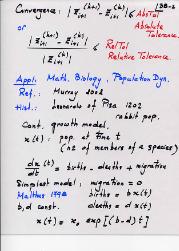 1BB-2
Convergence: | x_{i+1}^{(k+1)} - x_{i+1}^{(k)} | ≤ AbsTol
Absolute
Tolerance.
or
| x_{i+1}^{(k+1)} - x_{i+1}^{(k)} | / | x_{i+1}^{(k+1)} | ≤ RelTol
Relative Tolerance.
Appl: Math. Biology, Population Dyn.
Ref.: Murray 2002
Hist.: Leonardo of Pisa 1202
rabbit pop.
Cont. growth model.
x(t): pop. at time t
(n° of members of a species)
dx(t)/dt = births - deaths + migration
Simplest model: migration = 0
Malthus 1798 births = b x(t)
b, d const. deaths = d x(t)
x(t) = x₀ exp[(b-d)t]